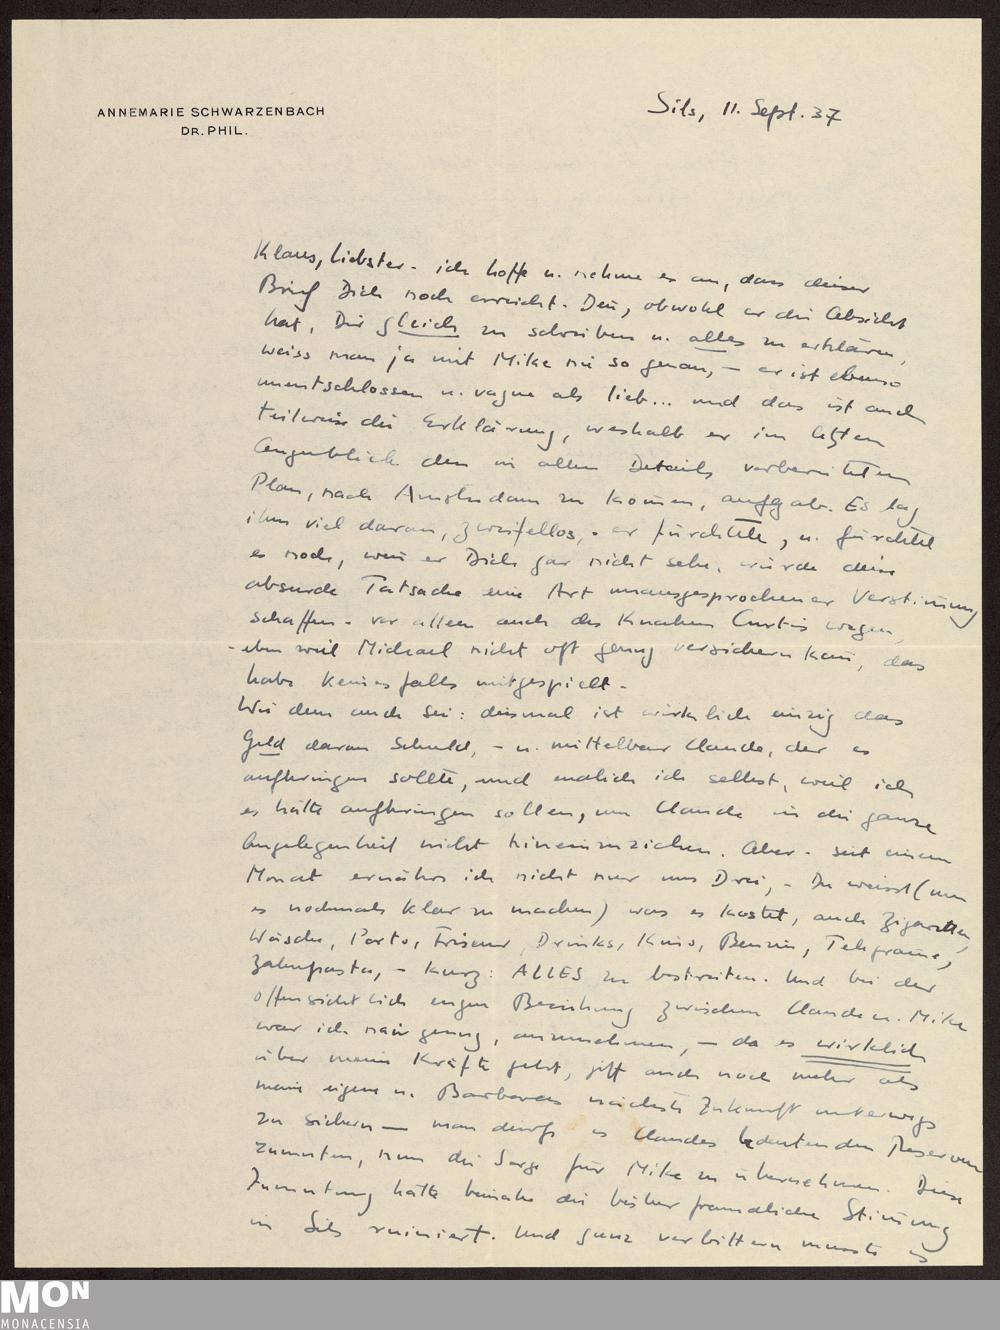 ANNEMARIE SCHWARZENBACH
DR. PHIL.
Sils, 11. Sept. 37
Klaus, liebster - ich hoffe u. nehme es an, dass dieser
Brief Dich noch erreicht. Denn, obwohl er die Absicht
hat, Dir gleich zu schreiben u. alles zu erklären,
weiss man ja mit Mike nie so genau, – er ist ebenso
unentschlossen u. vague als lieb... und das ist auch
teilweise die Erklärung, weshalb er im letzten
Augenblick den in allen Details vorbereiteten
Plan, nach Amsterdam zu kommen, aufgab. Es lag
ihm viel daran, zweifellos, - er fürchtete, u. fürchtet
es noch, wenn er Dich gar nicht sehe, würde diese
absurde Tatsache eine Art unausgesprochener Verstimmung
schaffen - vor allem auch des Knaben Curtis wegen,
- eben weil Michael nicht oft genug versichern kann, das
habe keinesfalls mitgespielt -
Wie dem auch sei: diesmal ist wirklich einzig das
Geld daran Schuld, – u. mittelbar Claude, der es
aufbringen sollte, und endlich ich selbst, weil ich
es hätte aufbringen sollen, um Claude in die ganze
Angelegenheit nicht hineinzuziehen. Aber - seit einem
Monat ernähre ich nicht nur uns Drei, – Du weisst (um
es nochmals klar zu machen) was es kostet, auch Zigaretten,
Wäsche, Porto, Friseur, Drinks, Kino, Benzin, Telegramme,
Zahnpasta, – kurz: ALLES zu bestreiten. Und bei der
offensichtlich engen Beziehung zwischen Claude u. Mike
war ich naiv genug, anzunehmen, – da es wirklich
über meine Kräfte geht, jetzt auch noch mehr als
meine eigene u. Barbaras nächste Zukunft unterwegs
zu sichern – man dürfe es Claudes bedeutenden Reserven
zumuten, nun die Sorge für Mike zu übernehmen. Diese
Zumutung hätte beinahe die bisher freundliche Stimmung
in Sils ruiniert. Und ganz verbittern musste es
MON
MONACENSIA